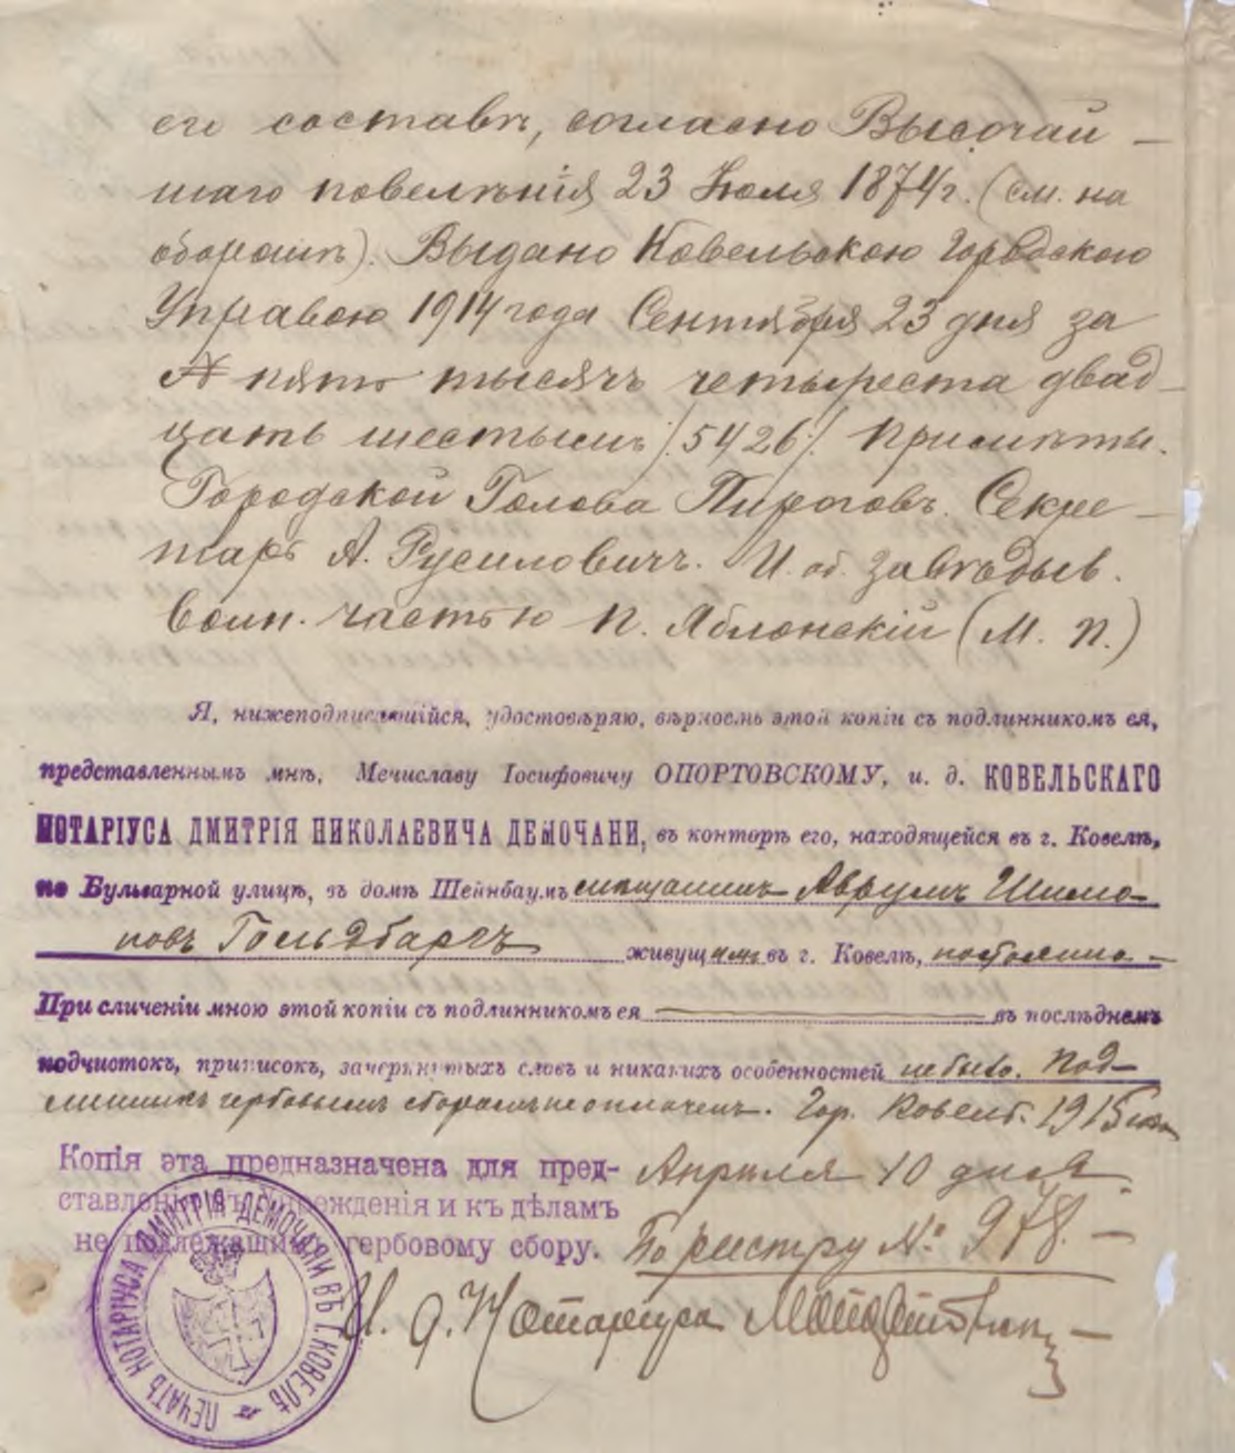 его составѣ, согласно Высочай-
шаго повелѣнія 23 Іюля 1874 г. (см. на
оборотѣ). Выдано Ковельскою Городскою
Управою 1914 года Сентября 23 дня за
№ пять тысячъ четыреста двад-
цать шестымъ /.5426/. Примѣты.
Городской Голова Пироговъ. Секре-
тарь А. Русиловичъ. И. об. завѣдыв.
воин. частью П. Яблонскій (М. П.)
Я, нижеподписавшійся, удостовѣряю, вѣрность этой копіи съ подлинникомъ ея,
представленнымъ мнѣ, Мечиславу Іосифовичу ОПОРТОВСКОМУ, и. д. КОВЕЛЬСКАГО
НОТАРІУСА ДМИТРІЯ НИКОЛАЕВИЧА ДЕМОЧАНИ, въ конторѣ его, находящейся въ г. Ковелѣ,
по Бульварной улицѣ, въ домѣ Шейнбаумъ мѣщанинъ Аврумъ Шимо-
новъ Гольдбаргъ живущимъ въ г. Ковелѣ, постоянно -
При сличеніи мною этой копіи съ подлинникомъ ея въ послѣднемъ
подчистокъ, приписокъ, зачеркнутыхъ словъ и никакихъ особенностей не было. Под-
линникъ гербовымъ сборомъ не оплаченъ. Гор. Ковель. 1915 года
Копія эта предназначена для пред- Апрѣля 10 дня.
ставленія въ учрежденія и къ дѣламъ
не подлежащимъ гербовому сбору. По реестру № 978. -
И. д. Нотаріуса
ПЕЧАТЬ НОТАРІУСА ДМИТРІЯ ДЕМОЧАНИ ВЪ Г. КОВЕЛѢ